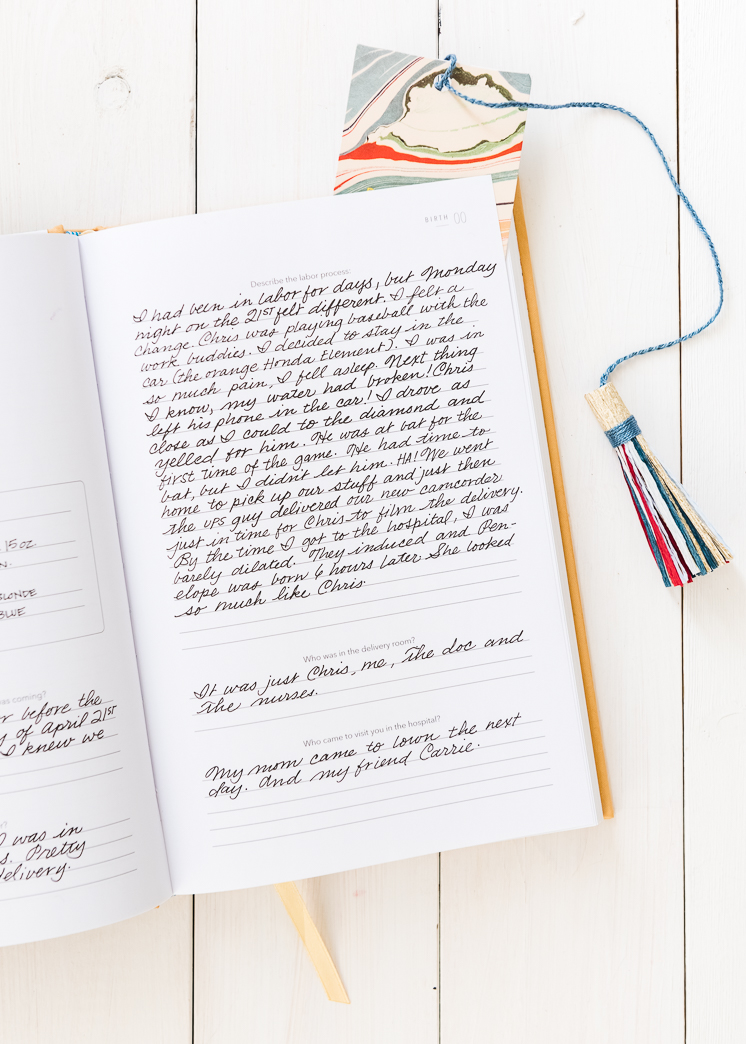 15oz
N.
BLONDE
BLUE
was coming?
r before the
y of April 21st
I knew we
I was in
s. Pretty
delivery.
BIRTH 00
Describe the labor process:
I had been in labor for days, but Monday
night on the 21st felt different. I felt a
change. Chris was playing baseball with the
work buddies. I decided to stay in the
car (the orange Honda Element). I was in
so much pain, I fell asleep. Next thing
I know, my water had broken! Chris
left his phone in the car! I drove as
close as I could to the diamond and
yelled for him. He was at bat for the
first time of the game. He had time to
bat, but I didn't let him. HA! We went
home to pick up our stuff and just then
the UPS guy delivered our new camcorder
just in time for Chris to film the delivery.
By the time I got to the hospital, I was
barely dilated. They induced and Pen-
elope was born 6 hours later She looked
so much like Chris.
Who was in the delivery room?
It was just Chris, me, the doc and
the nurses.
Who came to visit you in the hospital?
My mom came to town the next
day. And my friend Carrie.